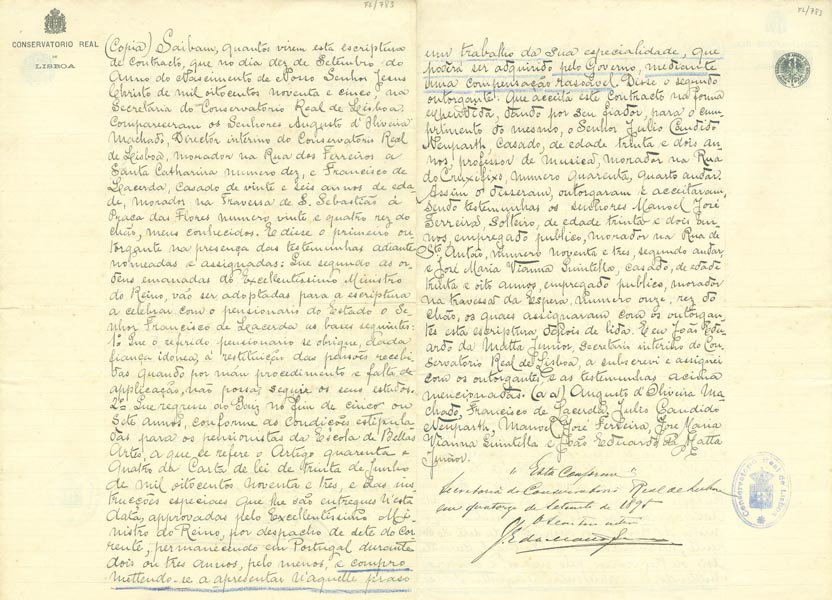 YL/783
CONSERVATORIO REAL
DE
LISBOA
(Copia) Saibam, quantos virem esta escriptura
de contracto, que no dia dez de Setembro do
Anno do Nascimento de Nosso Senhor Jesus
Christo de mil oitocentos noventa e cinco, na
Secretaria do Conservatorio Real de Lisboa.
Compareceram os Senhores Augusto d'Oliveira
Machado, Director interino do Conservatorio Real
de Lisboa, morador na Rua dos Ferreiros a
Santa Catharina numero dez, e Francisco de
Lacerda, casado de vinte e seis annos de eda-
de, morador na Travessa de S. Sebastião á
Praça das Flores numero vinte e quatro rez do
chão, meus conhecidos. E disse o primeiro ou-
torgante na presença das testemunhas adiante
nomeadas e assignadas: Que segundo as or-
dens emanadas do Excellentissimo Ministro
do Reino, vão ser adoptadas para a escriptura
a celebrar com o pensionario do Estado o Se-
nhor Francisco de Lacerda as bases seguintes:
1ª Que o referido pensionario se obrigue, dada
fiança idonea, á restituição das pensões recebi-
das quando por máu procedimento e falta de
applicação, não possa seguir os seus estudos.
2ª Que regresse ao Paiz no fim de cinco ou
sete annos, conforme as condições estipula-
das para os pensionistas da Escola de Bellas
Artes, a que se refere o Artigo quarenta e
quatro da Carta de lei de trinta de Junho
de mil oitocentos noventa e tres, e das ins-
trucções especiaes que lhe são entregues n'esta
data, approvadas pelo Excellentissimo Mi-
nistro do Reino, por despacho de sete do cor-
rente, permanecendo em Portugal durante
dois ou tres annos, pelo menos, e compro-
mettendo-se a apresentar n'aquelle praso
YL/783
um trabalho da sua especialidade, que
poderá ser adquirido pelo Governo, mediante
uma compensação rasoavel. Disse o segundo
outorgante: Que acceita este contracto na forma
expendida, dando por seu fiador, para o cum-
primento do mesmo, o Senhor Julio Candido
Neuparth, casado, de edade trinta e dois an-
nos, professor de musica, morador na Rua
do Crucifixo, numero quarenta, quarto andar.
Assim o disseram, outorgaram e acceitaram,
sendo testemunhas os senhores Manoel José
Ferreira, solteiro, de edade trinta e dois an-
nos, empregado publico, morador na Rua de
Stº Antão, numero noventa e tres, segundo andar,
e José Maria Vianna Quintella, casado, de edade
trinta e oito annos, empregado publico, morador
na travessa da Espera, numero onze, rez do
chão, os quaes assignaram com os outorgan-
tes esta escriptura, depois de lida. E eu João Edu-
ardo da Matta Junior, Secretario interino do Con-
servatorio Real de Lisboa, a subscrevi e assignei
com os outorgantes e as testemunhas acima
mencionadas. (a.a) Augusto d'Oliveira Ma-
chado, Francisco de Lacerda, Julio Candido
Neuparth, Manoel José Ferreira, José Maria
Vianna Quintella e João Eduardo da Matta
Junior.
"Está Conforme"
Secretaria do Conservatorio Real de Lisboa
em quatorze de Setembro de 1895
O Secretario interino
J. E. da Matta Junior
Conservatorio Real de Lisboa